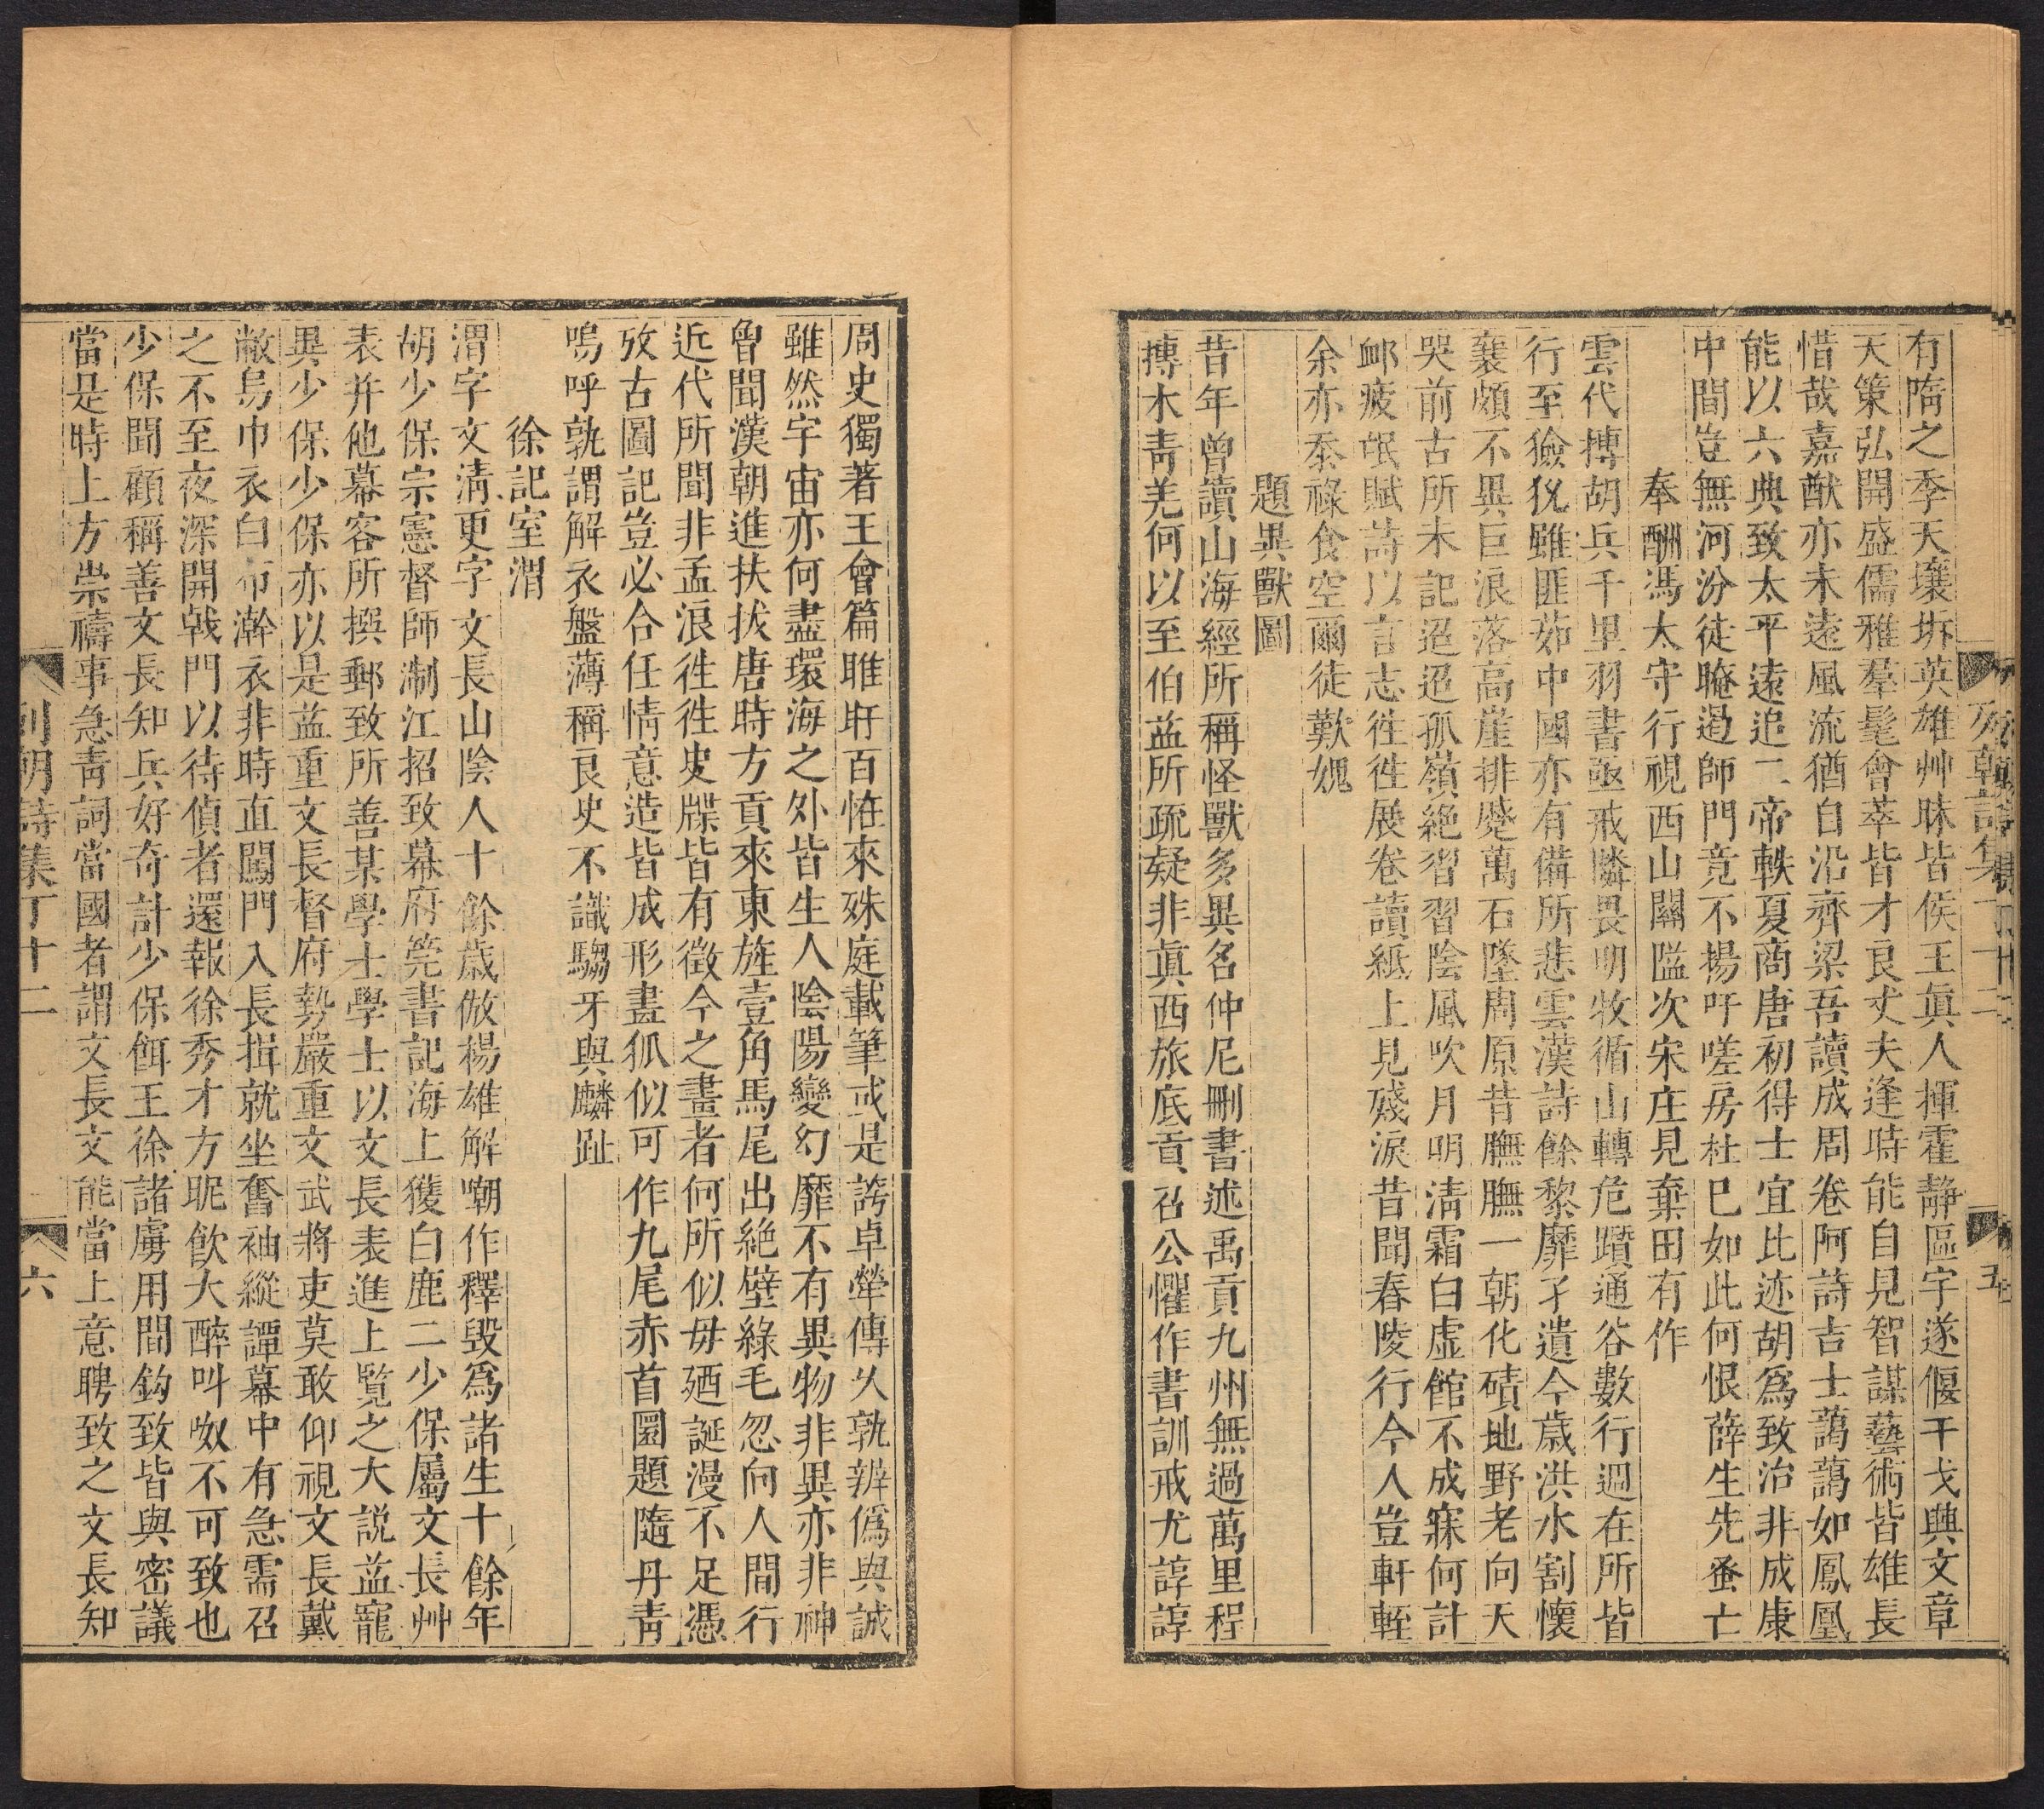 有隋之季天壤坼英雄艸昧皆侯王眞人揮霍靜區宇遂偃干戈興文章
天策弘開盛儒雅羣髦會萃皆才良丈夫逢時能自見智謀藝術皆雄長
惜哉嘉猷亦未遠風流猶自沿齊梁吾讀成周卷阿詩吉士藹藹如鳳凰
能以六典致太平遠追二帝軼夏商唐初得士宜比迹胡爲致治非成康
中間豈無河汾徒晻過師門竟不揚吁嗟房杜已如此何恨薛生先蚤亡
奉酬馮太守行視西山關隘次宋庄見棄田有作
雲代搏胡兵千里羽書亟戒隣畏明牧循山轉危躋通谷數行週在所皆
行至獫狁雖匪茹中國亦有備所悲雲漢詩餘黎靡孑遺今歲洪水割懷
襄頗不異巨浪落高崖排㙺萬石墜周原昔膴膴一朝化磧地野老向天
哭前古所未記迢迢孤嶺絶習習陰風吹月明淸霜白虛館不成寐何計
䘏疲氓賦詩以言志徃徃展卷讀紙上見殘淚昔聞舂陵行今人豈軒輊
余亦忝祿食空爾徒歎媿
題異獸圖
昔年曾讀山海經所稱怪獸多異名仲尼刪書述禹貢九州無過萬里程
搏木靑羌何以至伯益所疏疑非眞西旅底貢召公懼作書訓戒尤諄諄
列朝詩集丁十二
五
周史獨著王會篇睢盱百恠來殊庭載筆或是誇卓犖傳乆孰辨僞與誠
雖然宇宙亦何盡環海之外皆生人陰陽變幻靡不有異物非異亦非神
曾聞漢朝進扶拔唐時方貢來東旌壹角馬尾出絶壁綠毛忽向人間行
近代所聞非孟浪徃徃史牒皆有徵今之畫者何所似毋廼誕漫不足憑
攷古圖記豈必合任情意造皆成形畫狐似可作九尾赤首圜題隨丹靑
嗚呼孰謂解衣盤薄稱良史不識騶牙與麟趾
徐記室渭
渭字文淸更字文長山陰人十餘歲倣楊雄解嘲作釋毁爲諸生十餘年
胡少保宗憲督師浙江招致幕府筦書記海上獲白鹿二少保屬文長艸
表并他幕客所撰郵致所善某學士學士以文長表進上覽之大説益寵
異少保少保亦以是益重文長督府勢嚴重文武將吏莫敢仰視文長戴
敝烏巾衣白布澣衣非時直闖門入長揖就坐奮袖縱譚幕中有急需召
之不至夜深開戟門以待偵者還報徐秀才方昵飮大醉叫呶不可致也
少保聞顧稱善文長知兵好奇計少保餌王徐諸虜用間鈎致皆與密議
當是時上方崇禱事急靑詞當國者謂文長文能當上意聘致之文長知
列朝詩集丁十二
六